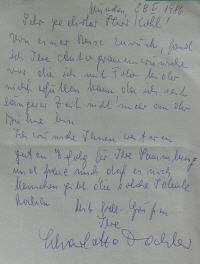 München, 28.I.1986
Sehr geehrter Herr Kohl!
Von einer Reise zurück, fand
ich Ihre Autogrammwünsche
vor, die ich mit Foto leider
nicht erfüllen kann da ich seit
längerer Zeit nicht mehr an der
Bühne bin
Ich wünsche Ihnen weiteren
guten Erfolg für Ihre Sammlung
und freue mich daß es noch
Menschen gibt die solche
haben
Mit Grüßen
Ihre
Charlotte